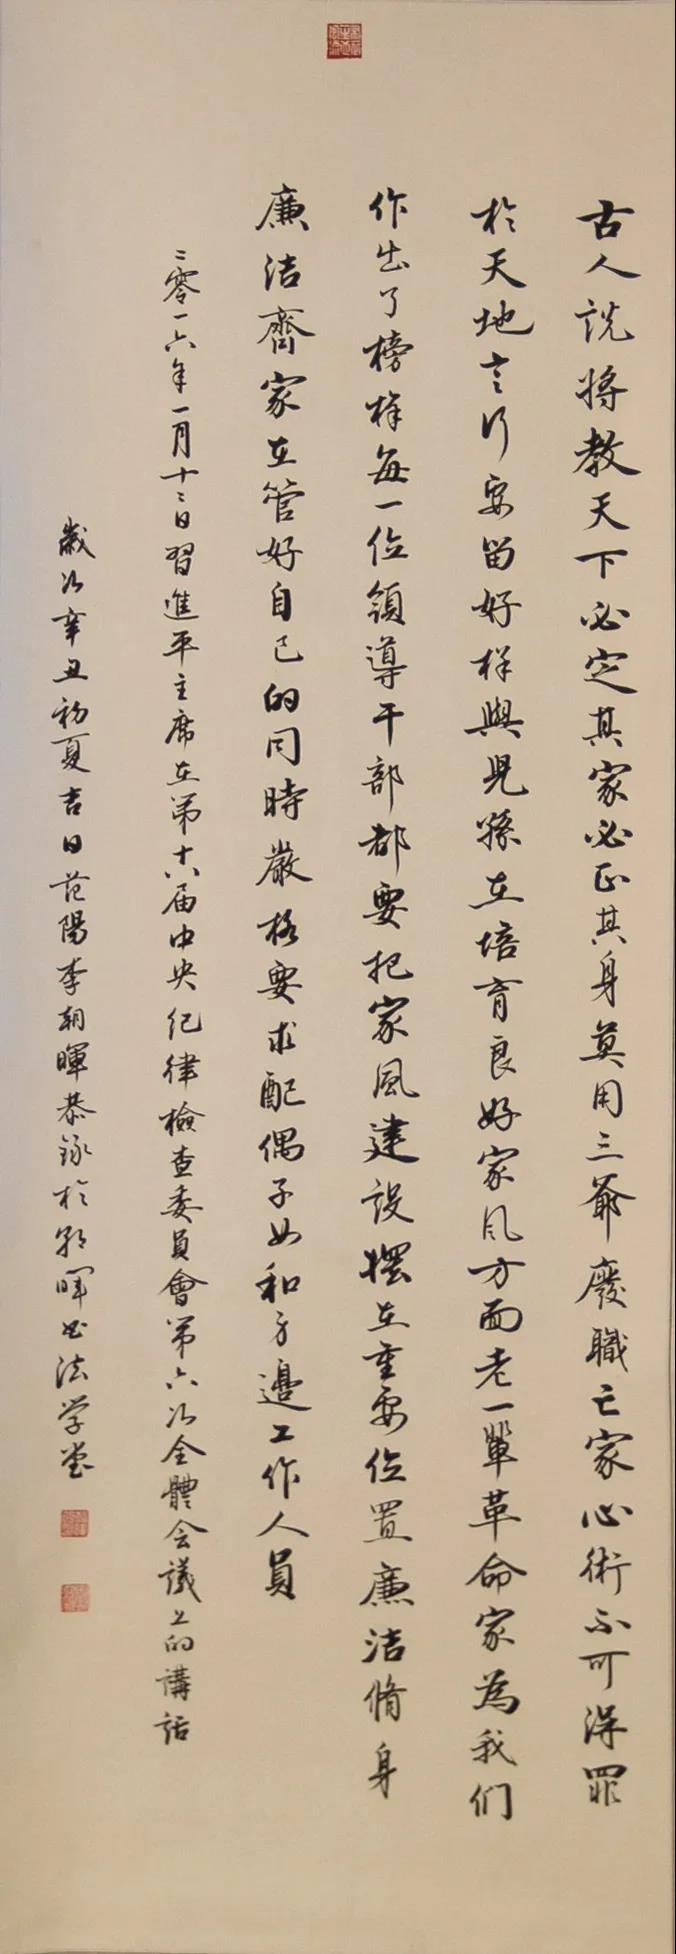 古人説将教天下必定其家必正其身莫用三爺廢職亡家心術不可得罪
於天地言行要留好樣與兒孫在培育良好家风方面老一輩革命家為我们
作出了榜樣每一位領導干部都要把家風建設擺在重要位置廉洁脩身
廉洁齊家在管好自己的同時嚴格要求配偶子女和身邊工作人員
二零一六年一月十二日習進平主席在第十八届中央纪律檢查委員會第六次全體会議上的講話
歲次辛丑初夏吉日范陽李朝暉恭録於朝暉书法学堂